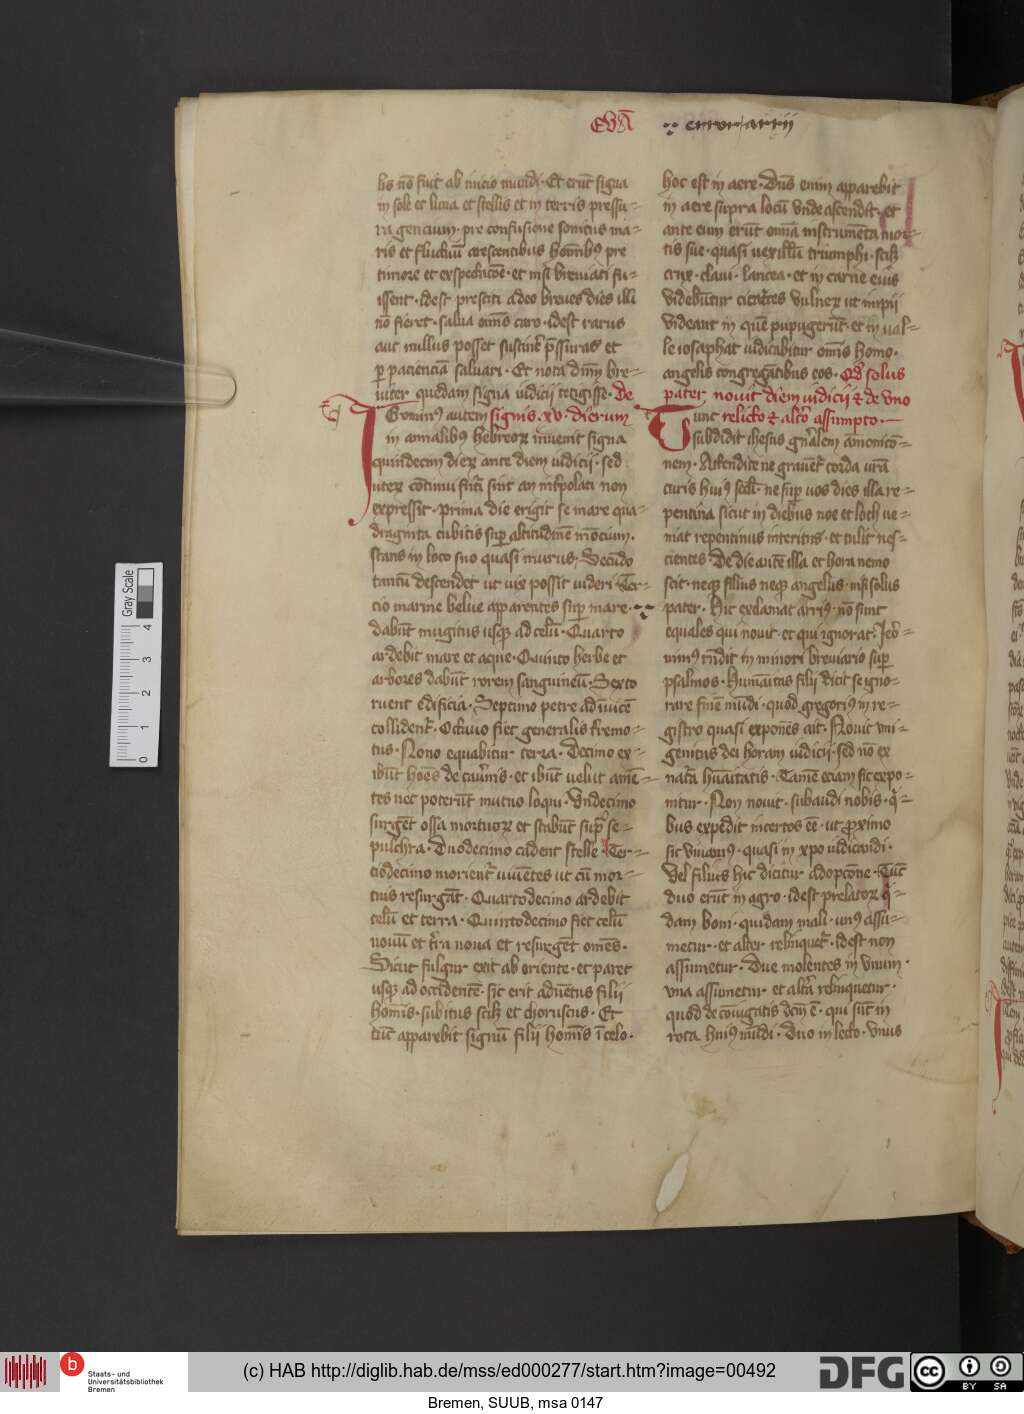 EVA
error arrii
lis nō fuit ab inicio mundi · Et erūt signa
in sole et luna et stellis et in terris pressu-
ra gencium · pre confusione sonitus ma-
ris et fluctuū crescentibus hominibꝰ pre
timore et exspectacōe · et nisi breviati fu-
issent · idest presciti adeo breves dies illi
nō fieret · salva om̄s caro · idest rarus
aut nullus posset sustinēr p̄ssuras et
ꝑ pacienciā salvari · Et nota dn̄m bre-
viter quedam signa iudicii tetigisse · De
signis · xv · dierum
Ieronimꝰ autem
in annalibꝰ hebreoꝝ invenit signa
quindecim dieꝝ ante diem iudicii · sed
utꝝ cōtinui futi sint an int̄polati non
expressit · prima die erigit se mare qua-
draginta cubitis suꝑ altitudinē mōcium ·
stans in loco suo quasi murus · Secūdo
tantū descendet ut vix possit videri · Ter-
cio marine belue apparentes suꝑ mare ·
dabūt mugitus usqꝫ ad celū · Quarto
ardebit mare et aque · Quinto herbe et
arbores dabūt rorem sanguineū · Sexto
ruent edificia · Septimo petre adinvicē
collident᷑ · Octavo fiet generalis t̄remo-
tus · Nono equabitur terra · Decimo ex-
ibūt hoēs de cav̄nis · et ibūt velut amē-
tes nec poterūt mutuo loqui · Vndecimo
surgēt ossa mortuoꝝ et stabūt supͣ se-
pulchra · Duodecimo cadent stelle · Ter-
ciodecimo morient᷑ viventes ut cū mor-
tuis resurgāt · Quartodecimo ardebit
celū et terra · Quintodecimo fiet celū
novū et t̄ra nova et resurgēt om̄es ·
Sicut fulgur exit ab oriente · et paret
usqꝫ ad occidentē · sic erit advētus filii
hoīnis · subitus scilꝫ et choruscus · Et
tūc apparebit signū filii hoīnis ī celo ·
hoc est in aere · Dn̄s enim apparebit
in aere supra locū unde ascendit · et
ante eum erūt om̄ia instrumēta mor-
tis sue · quasi vexillū triumphi · scilꝫ
crux · clavi · lancea · et in carne eius
videbūtur cicat̄ces vulneꝝ ut impii
videant in quē pupugerūt · et in val-
le iosaphat iudicabitur om̄is homo ·
angelis congregātibus eos · Qd̄ solus
pater novit diem iudicii et de uno
relicto et altō assumpto ·
Tunc
subdidit ihesus gn̄alem āmonicō-
nem · Attendite ne gravēt᷑ corda vr̄a
curis huiꝰ scl̄i · ne suꝑ vos dies illa re-
pentina sicut in diebus noe et loth ve-
niat repentinus interitus · et tulit nes-
cientes · De die autē illa et hora nemo
scit · neqꝫ filius neqꝫ angelus · nisi solus
pater · Hic exclamat arriꝰ · nō sunt
equales qui novit · et qui ignorat · Iero-
nimꝰ r̄ndit in minori breviario suꝑ
psalmos · Humāitas filii dicit se igno-
rare finē mūdi · quod gregoriꝰ in re-
gistro quasi exponēs ait · Novit uni-
genitus dei horam iudicii · sed nō ex
nat̄a huāitatis · Tamē eciam sic expo-
nitur · Non novit · subaudi nobis · qͥ-
bus expedit incertos eē · ut ꝓximo
sic vivamꝰ · quasi in xpo iudicandi ·
Vel filius hic dicitur adopcōne · Tūc
duo erūt in agro · idest prelatoꝝ qͥ-
dam boni · quidam mali · unꝰ assu-
metur · et alter relinquet᷑ · idest non
assumetur · Due molentes in unum ·
una assumetur et alt̄a relinquetur ·
quod de coniugatis dc̄m ē · qui sūt in
rota huiꝰ mūdi · Duo in lecto · Vnus
Gray Scale
0 1 2 3 4
b
Staats- und
Universitätsbibliothek
Bremen
(c) HAB http://diglib.hab.de/mss/ed000277/start.htm?image=00492
DFG
cc BY SA
Bremen, SUUB, msa 0147